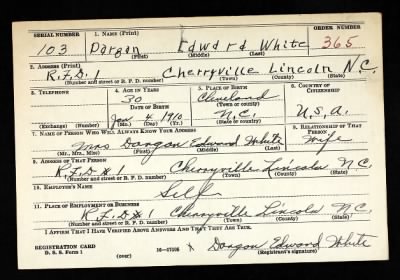 SERIAL NUMBER 1. NAME (Print) ORDER NUMBER
103 Dargan Edward White 365
(First) (Middle) (Last)
2. ADDRESS (Print)
R.F.D. 1 Cherryville Lincoln N.C.
(Number and street or R. F. D. number) (Town) (County) (State)
3. TELEPHONE 4. AGE IN YEARS 5. PLACE OF BIRTH 6. COUNTRY OF CITIZENSHIP
30 Cleveland
DATE OF BIRTH (Town or county)
Jan 4 1910 N.C. U.S.A.
(Exchange) (Number) (Mo.) (Day) (Yr.) (State or country)
7. NAME OF PERSON WHO WILL ALWAYS KNOW YOUR ADDRESS 8. RELATIONSHIP OF THAT PERSON
Mrs Dargan Edward White Wife
(Mr., Mrs., Miss) (First) (Middle) (Last)
9. ADDRESS OF THAT PERSON
R.F.D #1 Cherryville Lincoln N.C.
(Number and street or R. F. D. number) (Town) (County) (State)
10. EMPLOYER'S NAME
Self
11. PLACE OF EMPLOYMENT OR BUSINESS
R.F.D #1 Cherryville Lincoln N.C.
(Number and street or R. F. D. number) (Town) (County) (State)
I AFFIRM THAT I HAVE VERIFIED ABOVE ANSWERS AND THAT THEY ARE TRUE.
REGISTRATION CARD
D. S. S. Form 1 (over) 16-17105 x Dargan Edward White
(Registrant's signature)